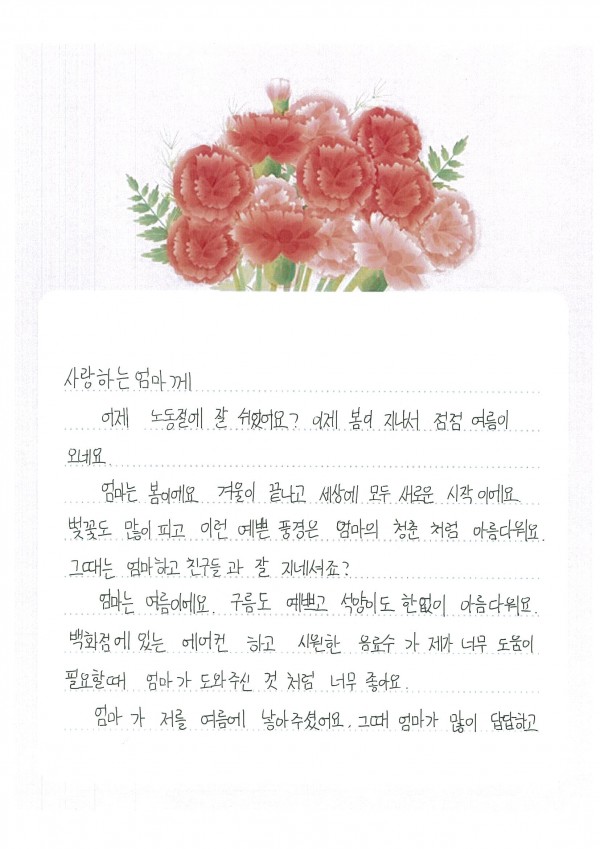 사랑하는 엄마께
어제 노동절에 잘 쉬었어요? 이제 봄이 지나서 점점 여름이
오네요.
엄마는 봄이에요 겨울이 끝나고 세상에 모두 새로운 시작이에요
벚꽃도 많이 피고 이런 예쁜 풍경은 엄마의 청춘 처럼 아름다워요.
그때는 엄마하고 친구들과 잘 지네셔죠?
엄마는 여름이에요. 구름도 예쁘고 석양이도 한없이 아름다워요.
백화점에 있는 에어컨 하고 시원한 음료수 가 제가 너무 도움이
필요할때 엄마가 도와주신 것 처럼 너무 좋아요.
엄마 가 저를 여름에 낳아주셨어요. 그때 엄마가 많이 답답하고